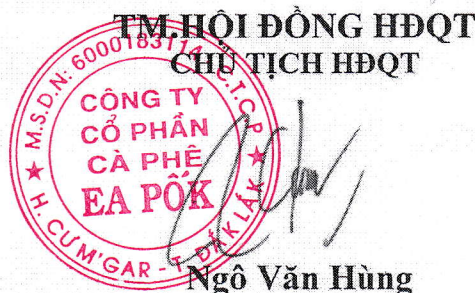 TM.HỘI ĐỒNG HĐQT
CHỦ TỊCH HĐQT
M.S.D.N: 6000183114 - C.T.C.P
CÔNG TY
CỔ PHẦN
CÀ PHÊ
EA PỐK
H. CƯ M'GAR - T. ĐẮK LẮK
Ngô Văn Hùng